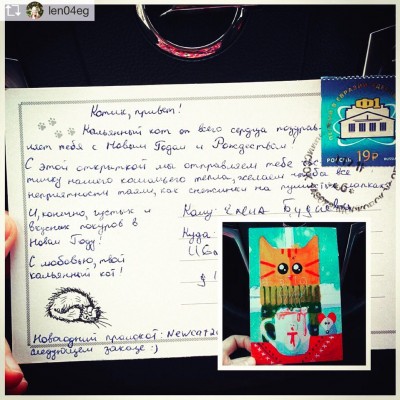 len04eg
Котик, привет!
Кальянный кот от всего сердца поздрав-
ляет тебя с Новым Годом и Рождеством!
С этой открыткой мы отправляем тебе
тичку нашего кошачьего тепла, желаем все
неприятности таяли, как снежинки на
И, конечно, густых и
вкусных покуров в
Новом Году!
С любовью, твой
кальянный кот!
Кому: Елена
Куда:
Новогодний промокод: Newcat2
следующем заказе :)
РОССИЯ 19₽